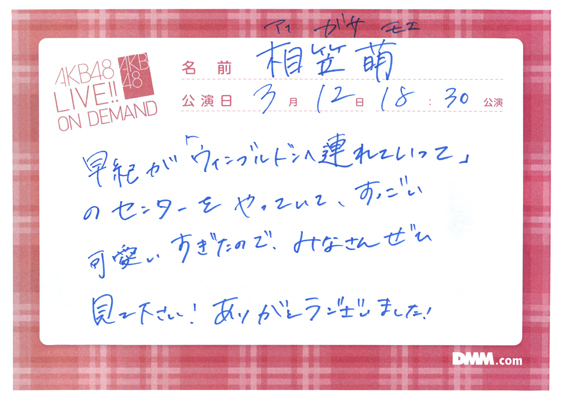 アイ ガサ モエ
名前 相笠萌
AKB48
LIVE!!
ON DEMAND
AKB
48
公演日 3月12日18:30公演
早紀が「ウィンブルドンへ連れていって」
のセンターをやっていて、すっごい
可愛いすぎたので、みなさんぜひ
見て下さい!ありがとうございました!
DMM.com